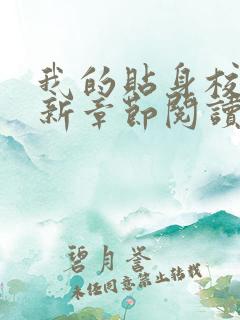 我的貼身校
新章節閱讀
碧月誉
未经同意禁止转载